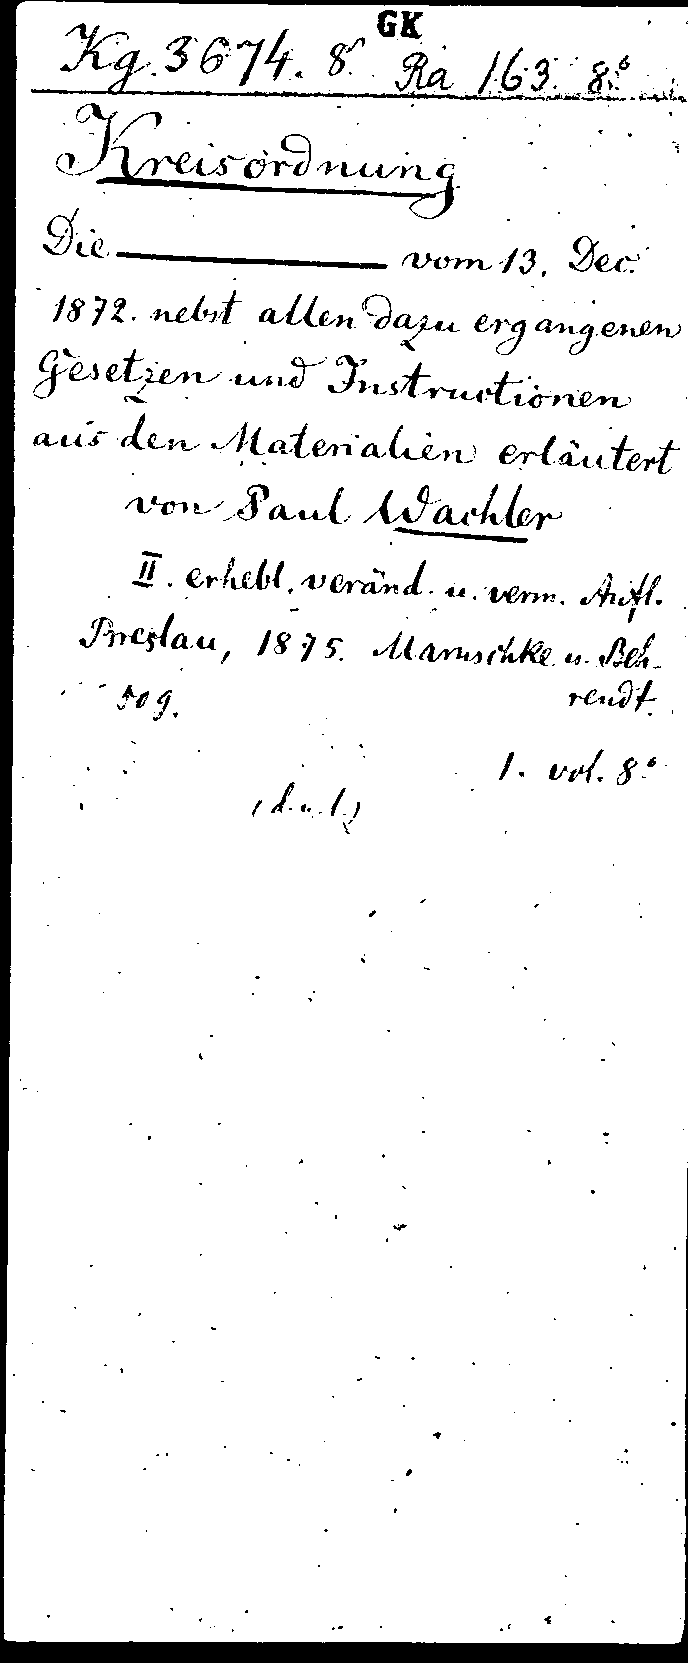 GK
Kg. 3674. 8° Ra 163. 8.°
Kreisordnung
Die ——— vom 13. Dec.
1872. nebst allen dazu ergangenen
Gesetzen und Instructionen
aus den Materialien erläutert
von Paul Wachler
II. erhebl. veränd. u. verm. Aufl.
Breslau, 1875. Maruschke u. Beh-
rendt.
509.
1. vol. 8.°